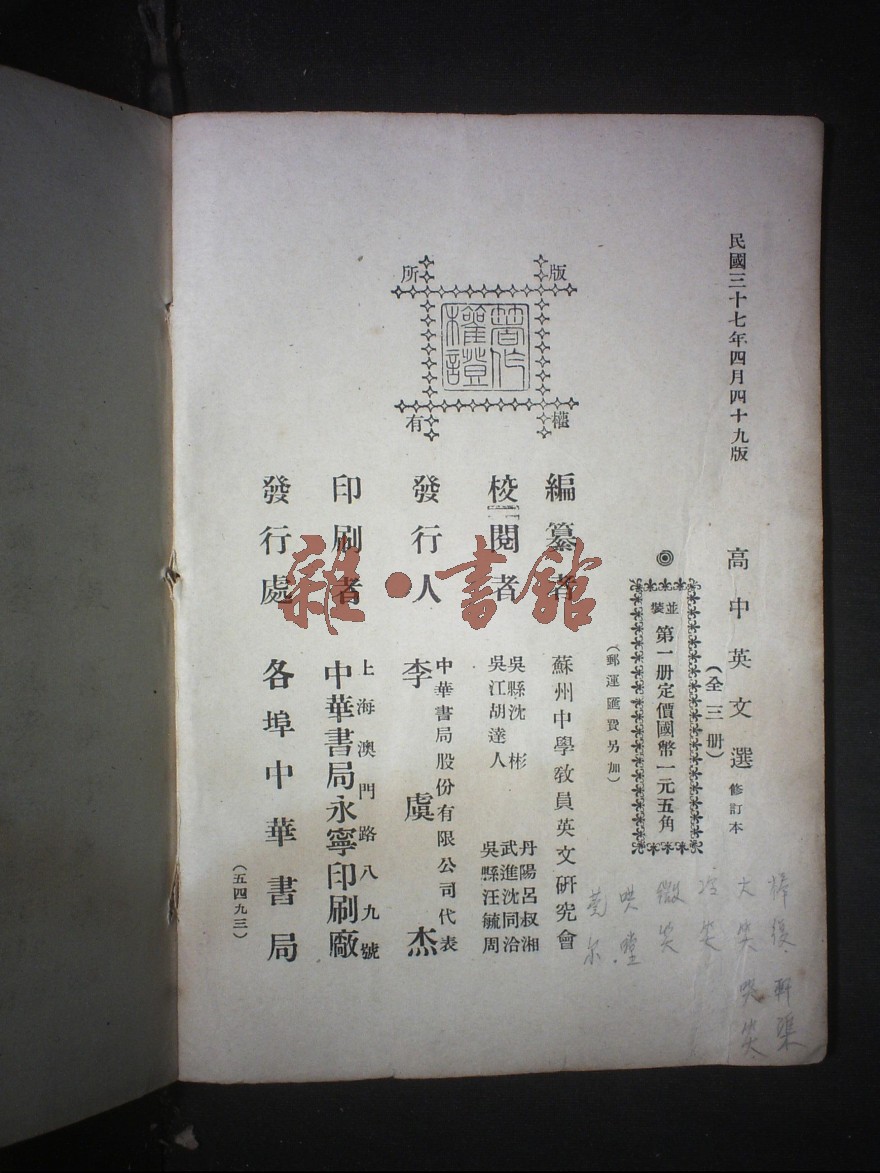 民國三十七年四月四十九版
高中英文選 修訂本
(全三册)
◎
並裝
第一册定價國幣一元五角
(郵運匯費另加)
版權所有
著作權證
編纂者 蘇州中學教員英文研究會
校閱者
吳縣沈彬
吳江胡達人
丹陽呂叔湘
武進沈同洽
吳縣汪毓周
發行人
中華書局股份有限公司代表
李虞杰
印刷者
上海澳門路八九號
中華書局永寧印刷廠
發行處 各埠中華書局
(五四九三)
捧腹 軒渠
大笑 哭笑
微笑
哄堂
莞尔
雜·書館